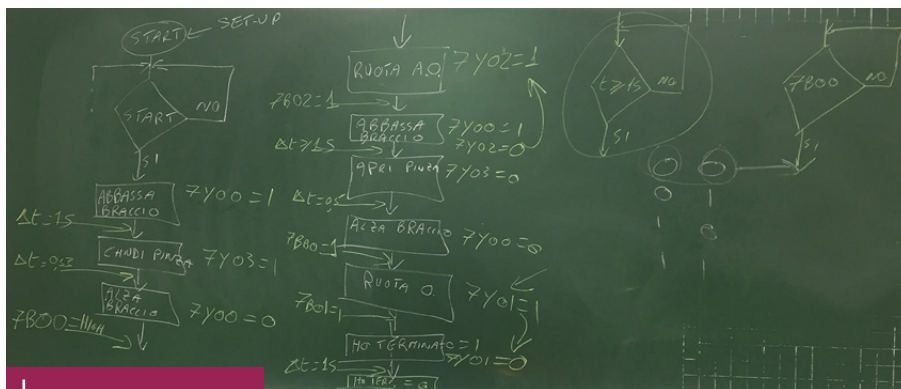 START
SET-UP
START
NO
SI
ABBASSA
BRACCIO
7Y00=1
Δt=1s
7Y03=1
ALZA
BRACCIO
7Y00=0
RUOTA A.O.
7Y02=1
7B02=1
ABBASSA
BRACCIO
7Y00=1
7Y02=0
Δt≥1s
APRI PINZA
7Y03=0
ALZA BRACCIO
7Y00=0
7B00=1
RUOTA O.
7Y01=1
7B01=1
HO TERMINATO=1
7Y01=0
Δt=1s
t≥1s
NO
SI
7B00
NO
SI
0 0
0 1
1 0
1 1